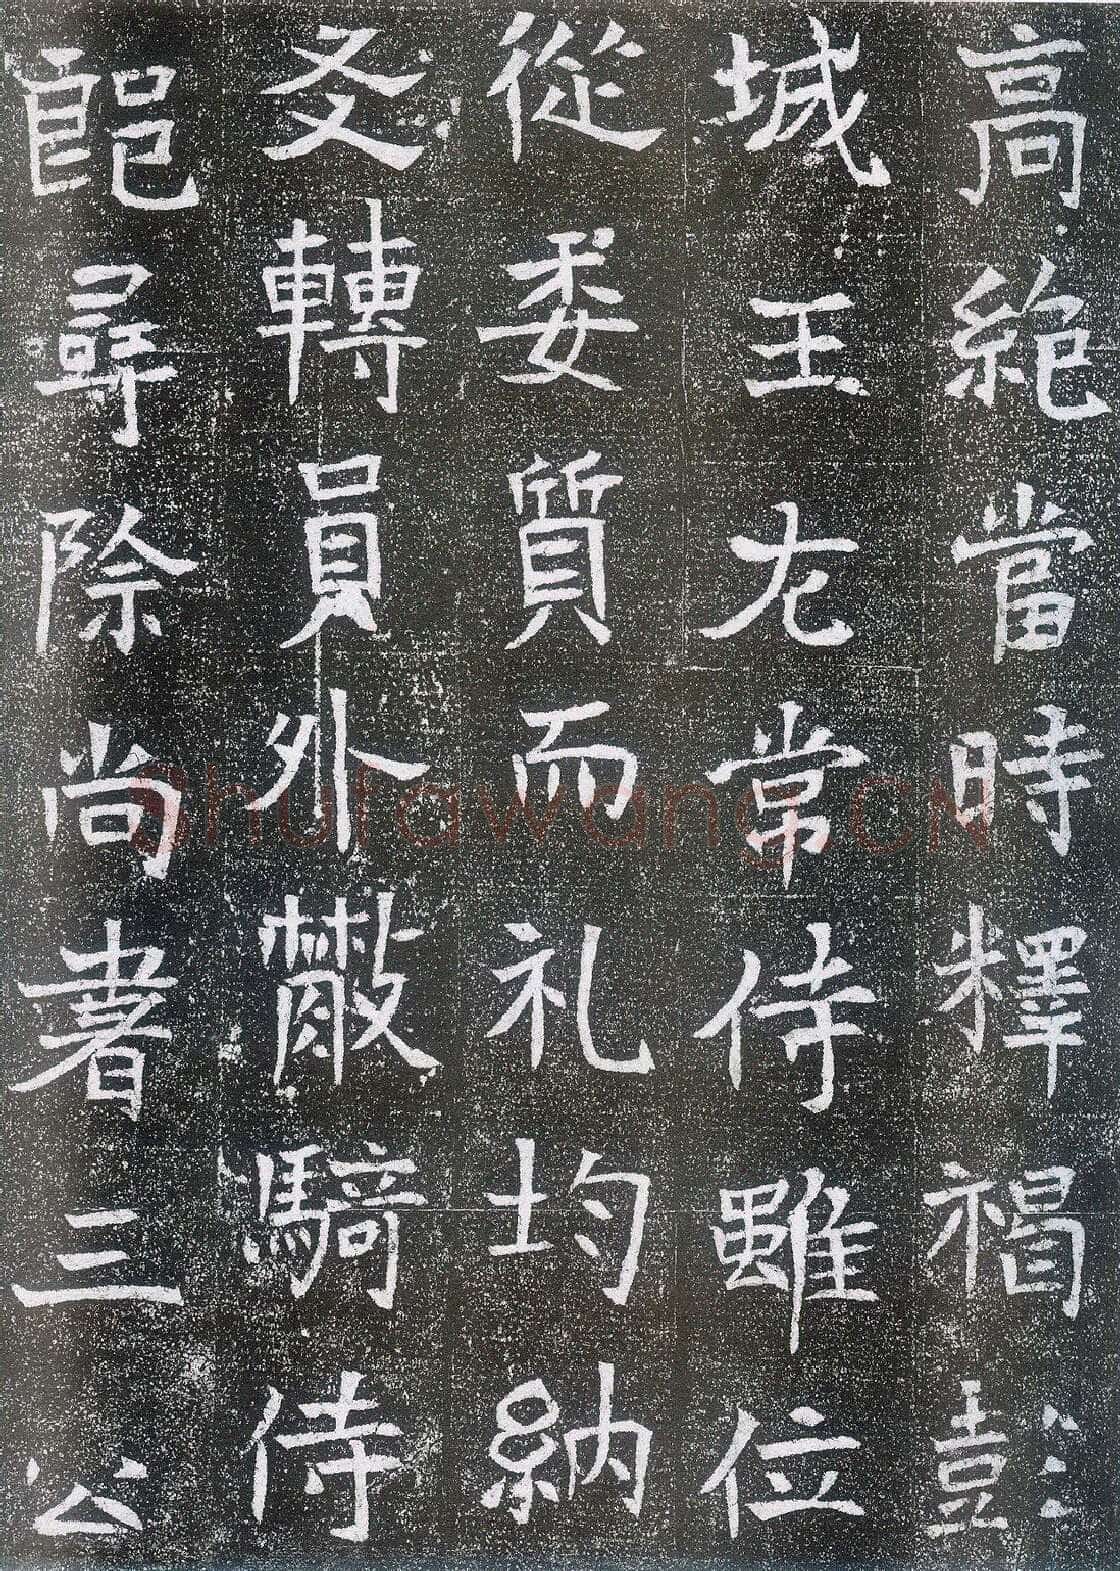 高絶當時釋褐彭
城王常侍雖位
從委質而礼均納
友轉員外散騎侍
郎尋除尚書三公
Shufawang.CN